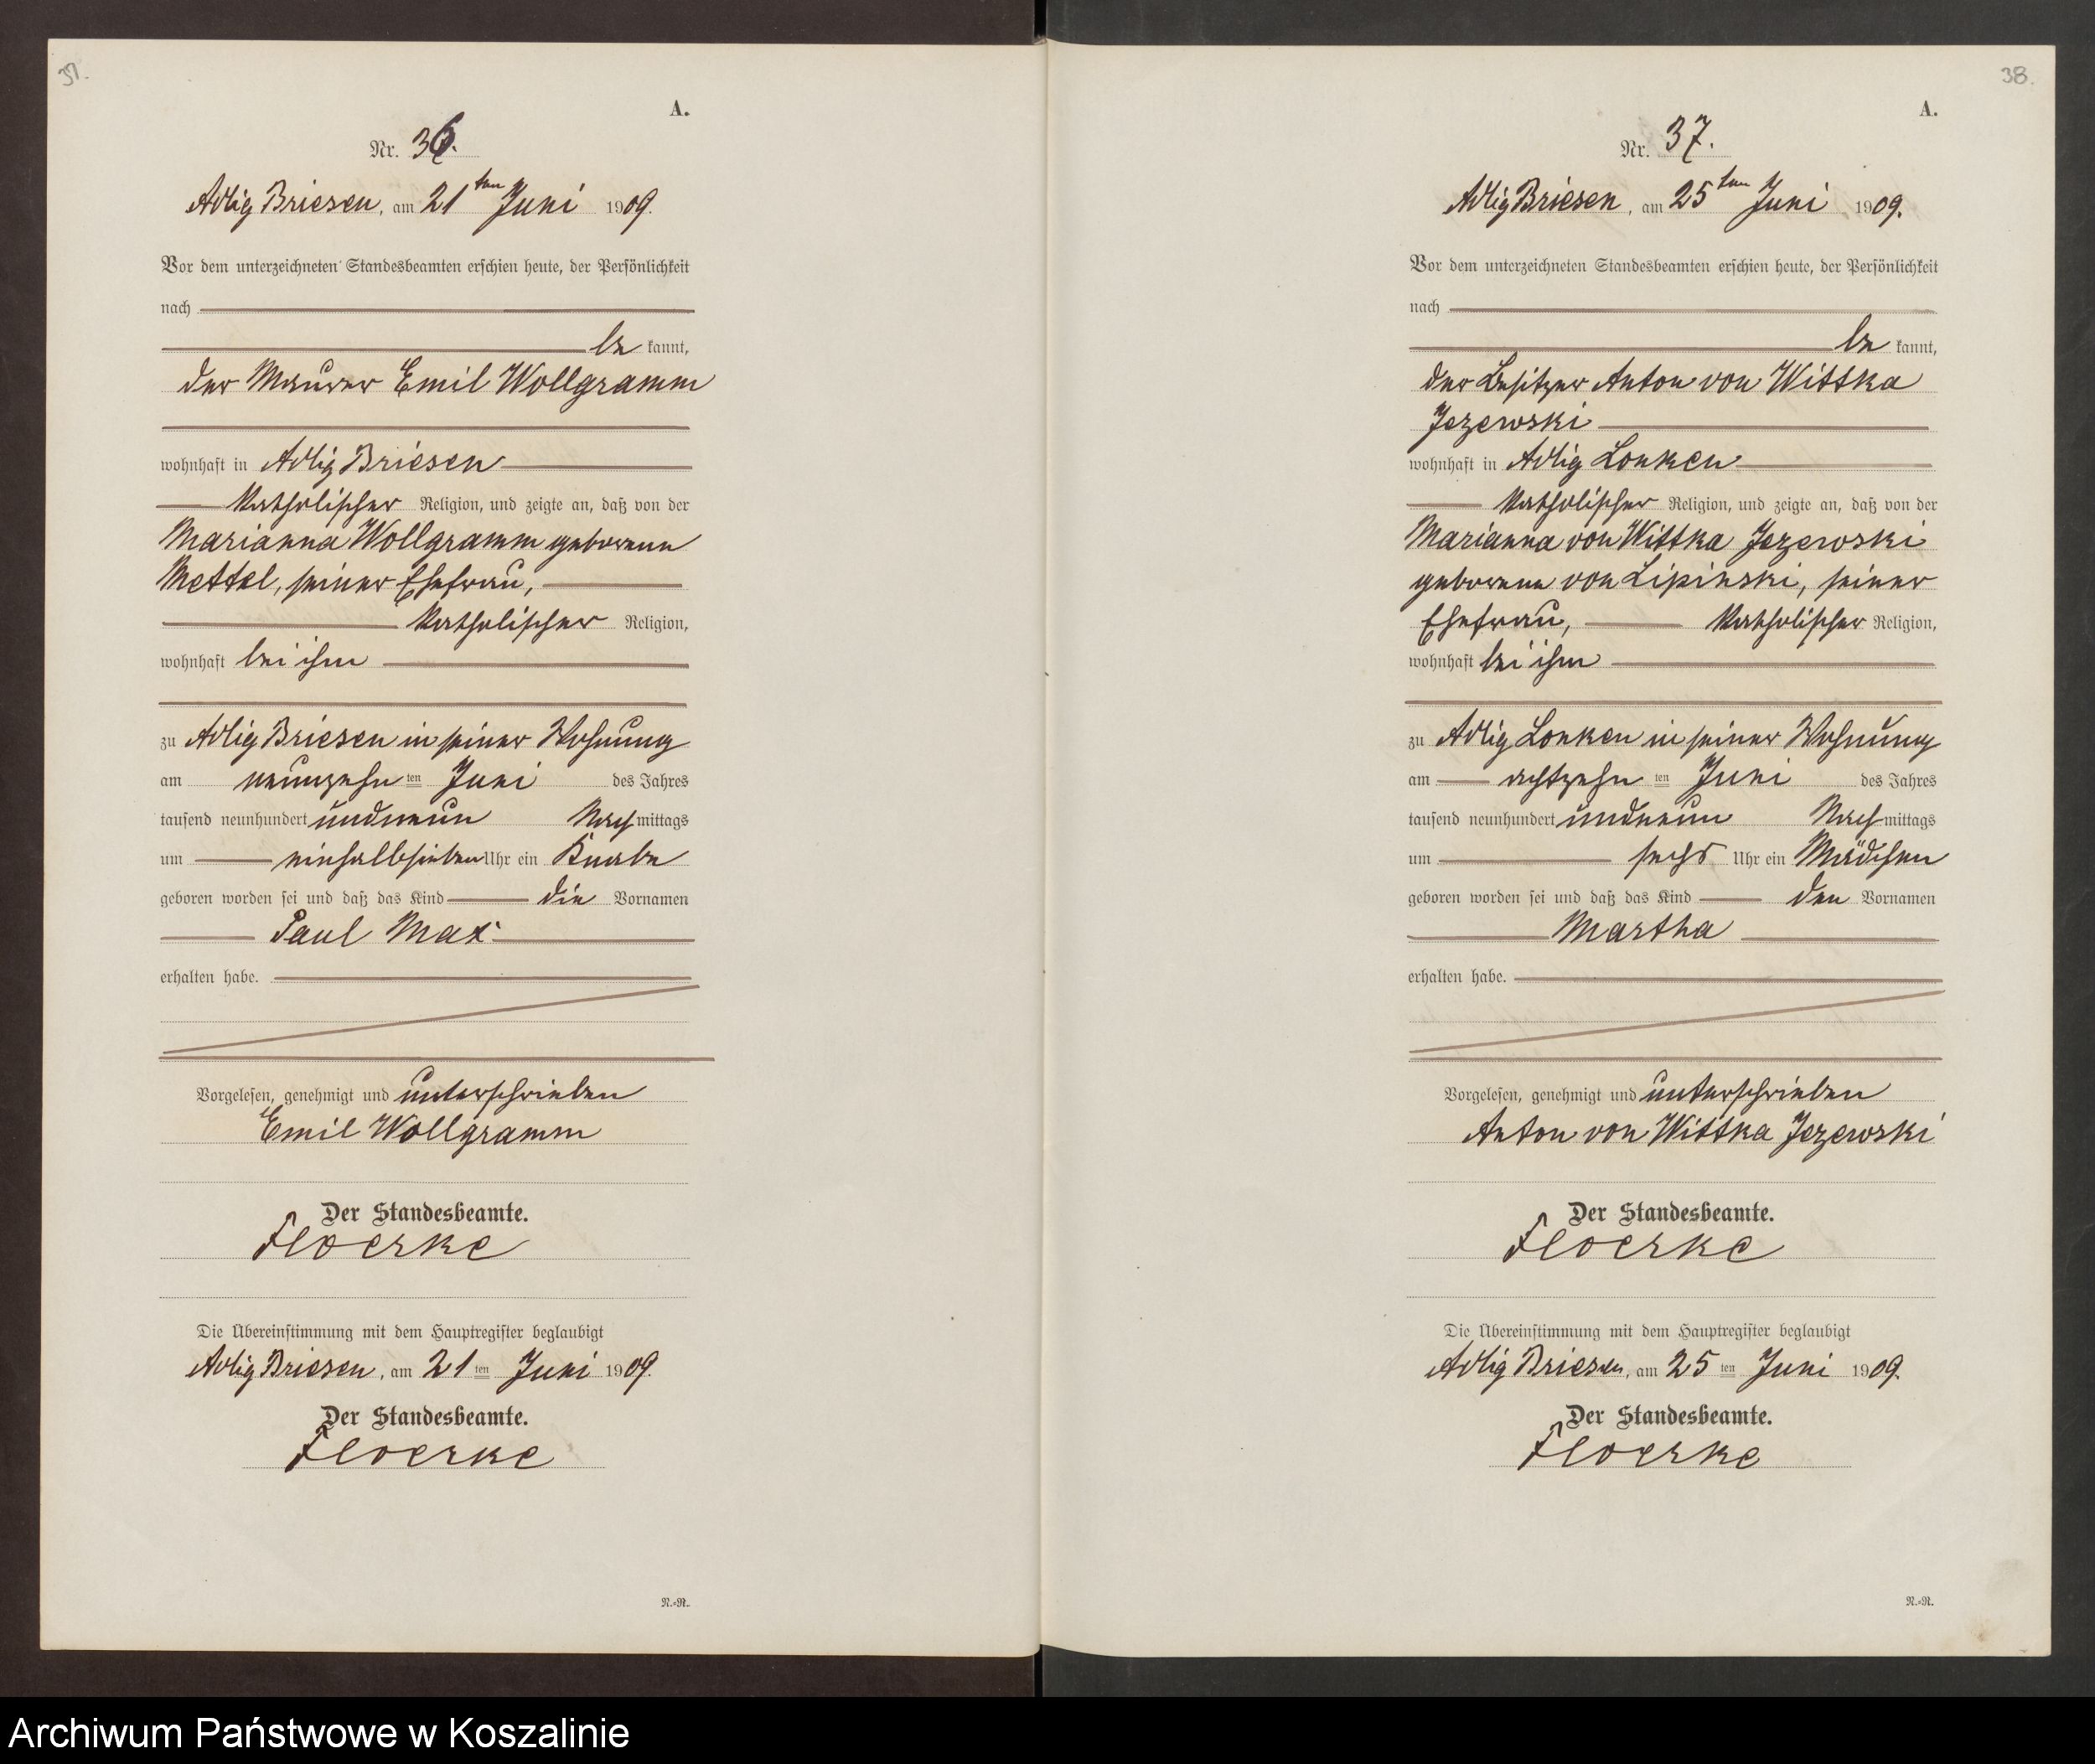 37.
A.
Nr. 36.
Adlig Briesen, am 21ten Juni 1909.
Vor dem unterzeichneten Standesbeamten erschien heute, der Persönlichkeit
nach
be kannt,
der Maurer Emil Wollgramm
wohnhaft in Adlig Briesen
katholischer Religion, und zeigte an, daß von der
Marianna Wollgramm geborenen
Mettel, seiner Ehefrau,
katholischer Religion,
wohnhaft bei ihm
zu Adlig Briesen in seiner Wohnung
am neunzehn ten Juni des Jahres
tausend neunhundert undneun Nachmittags
um einhalbsieben Uhr ein Knabe
geboren worden sei und daß das Kind die Vornamen
Paul Max
erhalten habe.
Vorgelesen, genehmigt und unterschrieben
Emil Wollgramm
Der Standesbeamte.
Floerke
Die Übereinstimmung mit dem Hauptregister beglaubigt
Adlig Briesen, am 21 ten Juni 1909.
Der Standesbeamte.
Floerke
N.=R.
38.
A.
Nr. 37.
Adlig Briesen, am 25ten Juni 1909.
Vor dem unterzeichneten Standesbeamten erschien heute, der Persönlichkeit
nach
be kannt,
der Besitzer Anton von Wittka
Jezewski
wohnhaft in Adlig Lonken
katholischer Religion, und zeigte an, daß von der
Marianna von Wittka Jezewski
geborene von Lipinski, seiner
Ehefrau, katholischer Religion,
wohnhaft bei ihm
zu Adlig Lonken in seiner Wohnung
am achtzehn ten Juni des Jahres
tausend neunhundert undneun Nachmittags
um sechs Uhr ein Mädchen
geboren worden sei und daß das Kind den Vornamen
Martha
erhalten habe.
Vorgelesen, genehmigt und unterschrieben
Anton von Wittka Jezewski
Der Standesbeamte.
Floerke
Die Übereinstimmung mit dem Hauptregister beglaubigt
Adlig Briesen, am 25 ten Juni 1909.
Der Standesbeamte.
Floerke
N.=R.
Archiwum Państwowe w Koszalinie